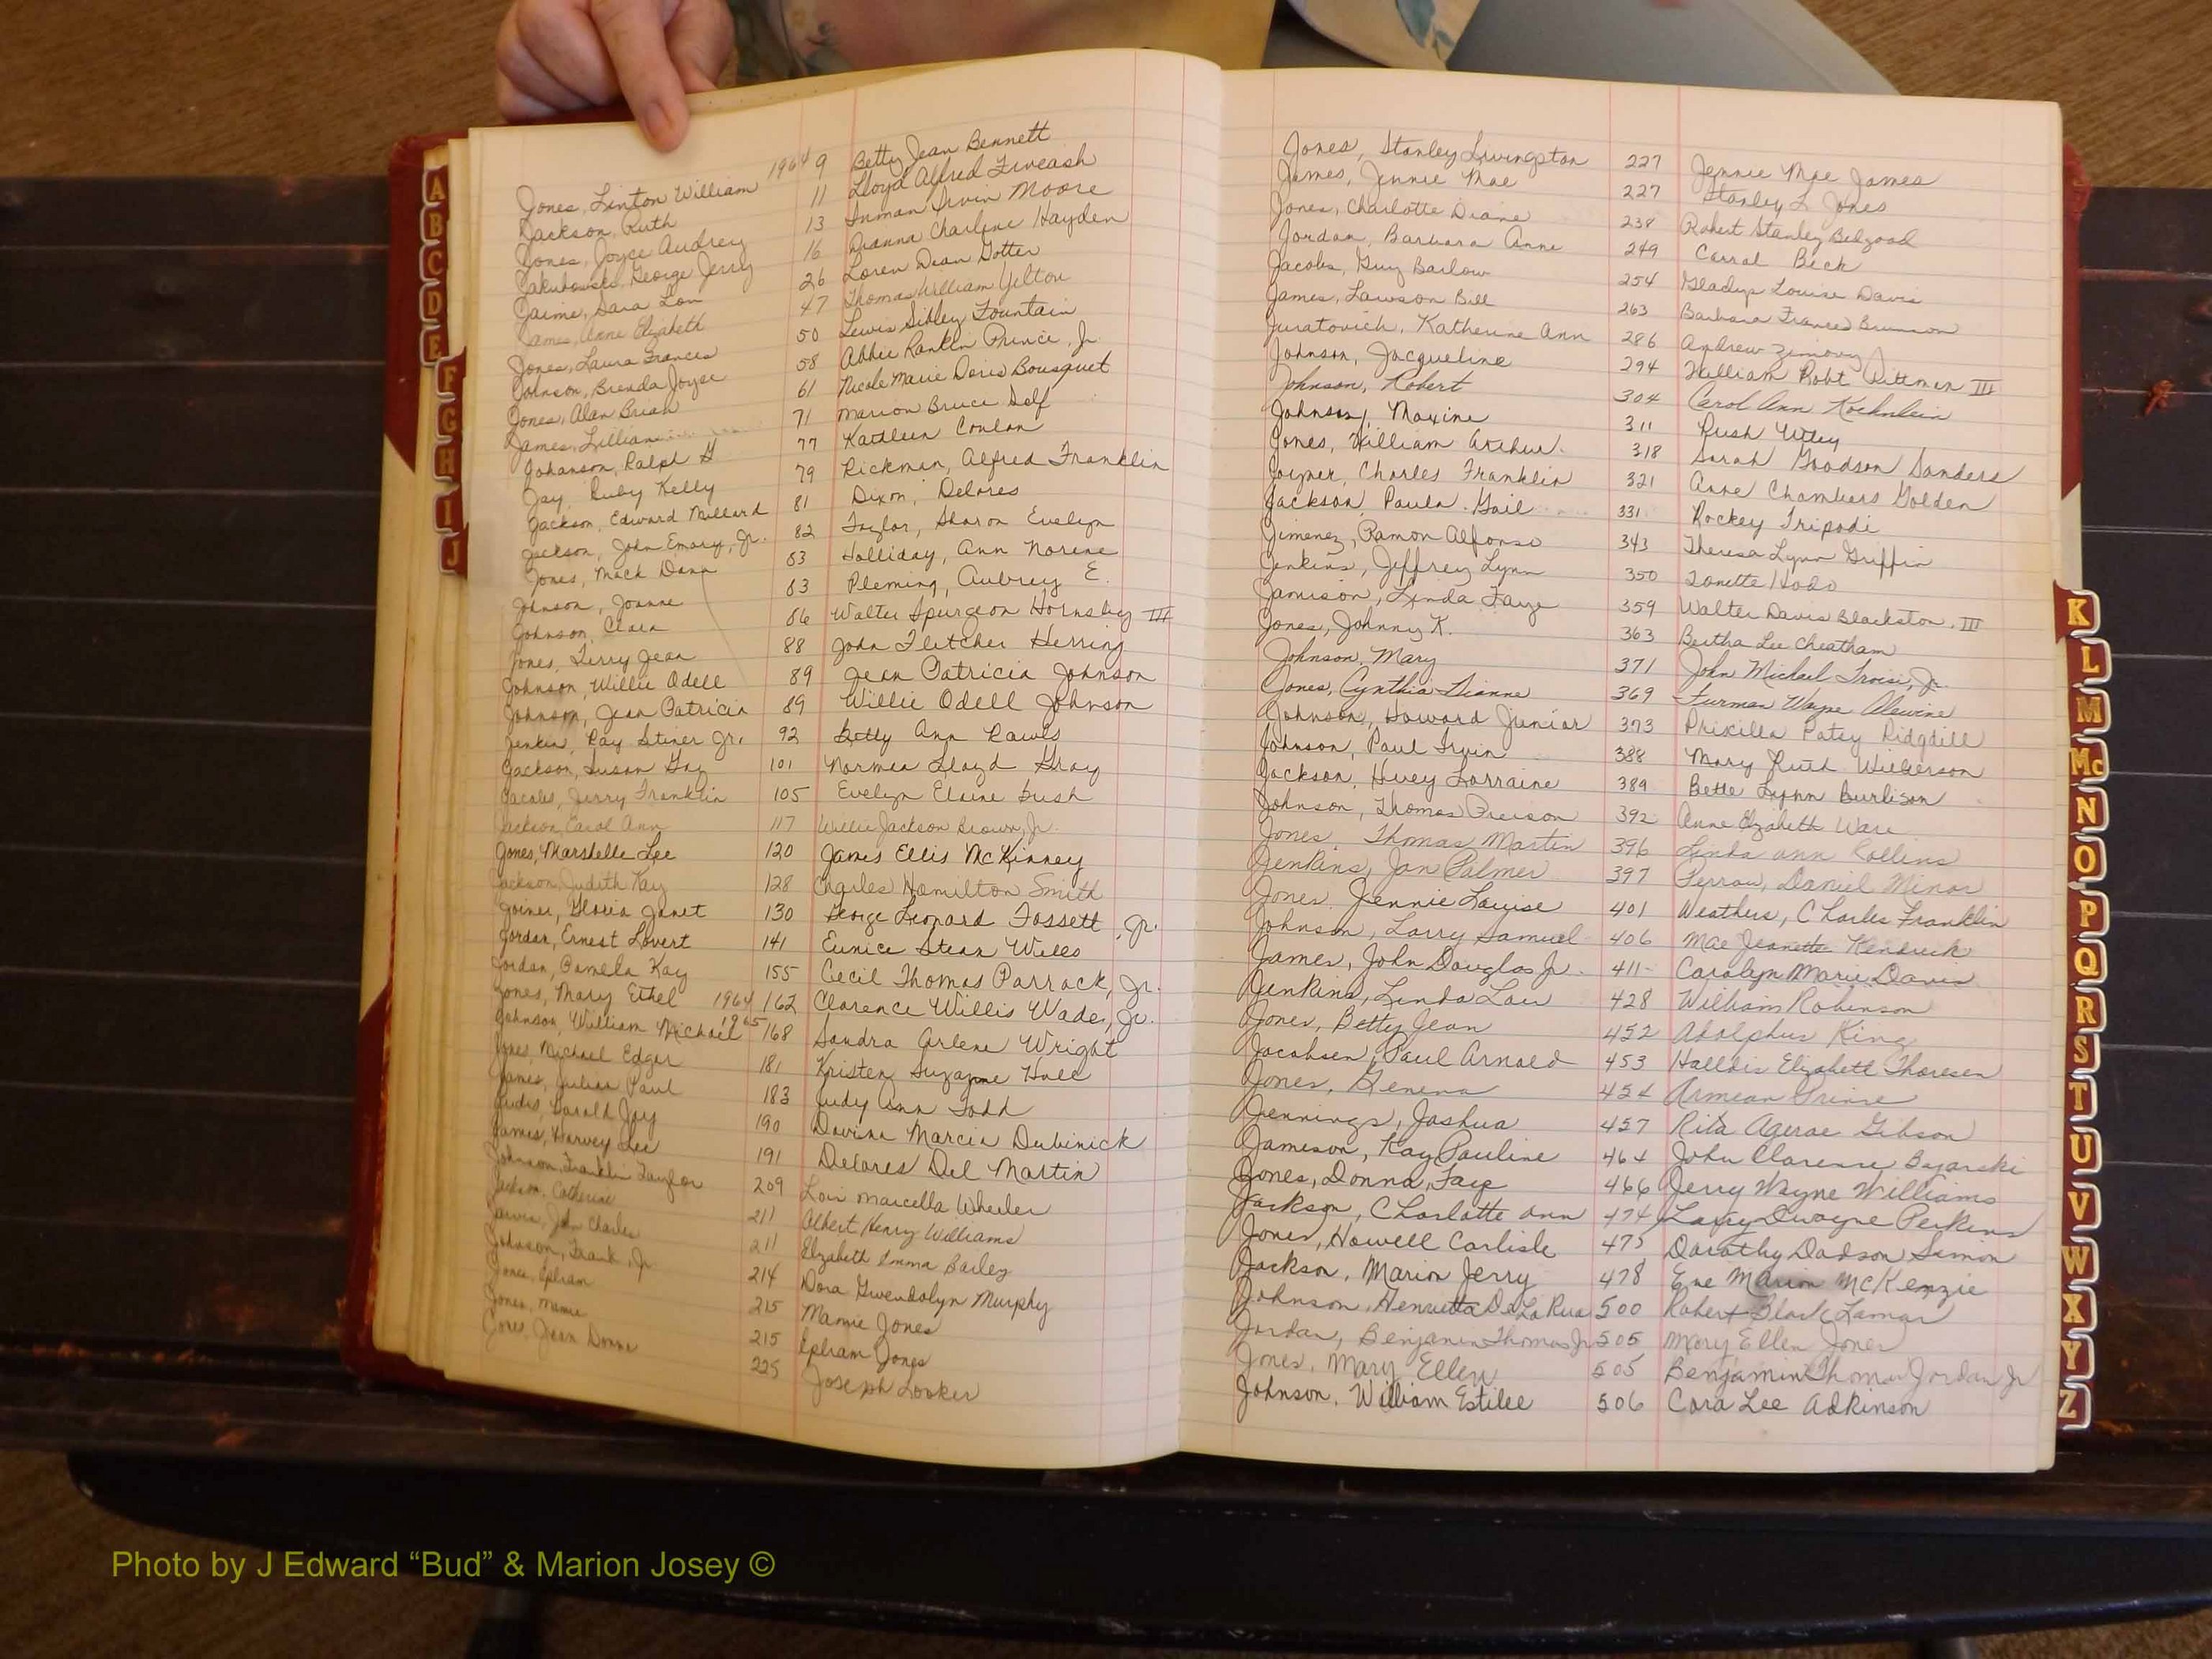 Jones, Linton William 1964 9 Betty Jean Bennett
Jackson, Ruth 11 Lloyd Alfred Firveash
Jones, Joyce Audrey 13 Inman Irvin Moore
Jakubowski, George Jerry 16 Dianna Charlene Hayden
Jaime, Sara Lou 26 Loren Dean Gotter
James, Anne Elizabeth 47 Thomas William Yelton
Jones, Laura Frances 50 Lewis Sibley Fountain
Johnson, Brenda Joyce 58 Abbie Rankin Prince, Jr.
Jones, Alan Brian 61 Nicole Marie Doris Bousquet
James, Lillian 71 Marion Bruce Self
Johanson, Ralph G 77 Kathleen Conlon
Jay, Ruby Kelly 79 Rickman, Alfred Franklin
Jackson, Edward Millard 81 Dixon, Delores
Jackson, John Emory, Jr. 82 Taylor, Sharon Evelyn
Jones, Mack Dana 83 Holliday, Ann Norene
Johnson, Joanne 83 Pleming, Aubrey E.
Johnson, Clara 86 Walter Spurgeon Hornsby III
Jones, Terry Jean 88 John Fletcher Herring
Johnson, Willie Odell 89 Jean Patricia Johnson
Johnson, Jean Patricia 89 Willie Odell Johnson
Jenkins, Ray Stiner Jr. 92 Betty Ann Rawls
Jackson, Susan Gay 101 Norman Lloyd Gray
Jacobs, Jerry Franklin 105 Evelyn Elaine Bush
Jackson, Carol Ann 117 Willie Jackson Brown, Jr.
Jones, Marshelle Lee 120 James Ellis McKinney
Jackson, Judith Kay 128 Charles Hamilton Smith
Joiner, Gloria Janet 130 George Leonard Fossett, Jr.
Jordan, Ernest Lovert 141 Eunice Stean Wells
Jordan, Pamela Kay 155 Cecil Thomas Parrack, Jr.
Jones, Mary Ethel 1964 162 Clarence Willis Wade, Jr.
Johnson, William Michael 1965 168 Sandra Arlene Wright
Jones, Michael Edgar 181 Kristen Suzanne Hall
James, Julian Paul 183 Judy Ann Todd
Judis, Harold Jay 190 Davina Marcia Dubinick
James, Harvey Lee 191 Delores Del Martin
Johnson, Franklin Taylor 209 Lois Marcella Wheeler
Jackson, Catherine 211 Albert Henry Williams
Jarvis, John Charles 211 Elizabeth Emma Bailey
Johnson, Frank, Jr. 214 Dora Gwendolyn Murphy
Jones, Ephram 215 Mamie Jones
Jones, Mamie 215 Ephram Jones
Jones, Jean Donna 225 Joseph Looker
Jones, Stanley Livingston 227 Jennie Mae James
James, Jennie Mae 227 Stanley L Jones
Jones, Charlotte Diane 238 Robert Stanley Bedgood
Jordan, Barbara Anne 249 Carral Beck
Jacobs, Guy Barlow 254 Gladys Louise Davis
James, Lawson Bill 263 Barbara Frances Brunson
Juratovich, Katherine Ann 286 Andrew Zimovy
Johnson, Jacqueline 294 William Robt Pittman III
Johnson, Robert 304 Carol Ann Koehnlein
Johnson, Maxine 311 Rush Utley
Jones, William Arthur 318 Sarah Goodson Sanders
Joyner, Charles Franklin 321 Anne Chambers Golden
Jackson, Paula Gail 331 Rockey Tripodi
Jimenez, Ramon Alfonso 343 Theresa Lynn Griffin
Jenkins, Jeffrey Lynn 350 Zanette Hobo
Jamison, Linda Faye 359 Walter Davis Blackston, III
Jones, Johnny K. 363 Bertha Lee Cheatham
Johnson, Mary 371 John Michael Troisi, Jr.
Jones, Cynthia Dianne 369 Furman Wayne Alewine
Johnson, Howard Junior 373 Priscilla Patsy Ridgdill
Johnson, Paul Irvin 388 Mary Ruth Wilkerson
Jackson, Huey Lorraine 389 Bette Lynn Burlison
Johnson, Thomas Preison 392 Anne Elizabeth Ware
Jones, Thomas Martin 396 Linda Ann Rollins
Jenkins, Jan Palmer 397 Perrow, Daniel Minor
Jones, Jennie Louise 401 Weathers, Charles Franklin
Johnson, Larry Samuel 406 Mae Jeanette Kendrick
James, John Douglas Jr. 411 Carolyn Marie Davis
Jenkins, Linda Lou 428 William Robinson
Jones, Betty Jean 452 Adolphus King
Jacobsen, Paul Arnold 453 Halldis Elizabeth Thoresen
Jones, Renena 454 Armean Prince
Jennings, Joshua 457 Rita Agerae Gibson
Jameson, Kay Pauline 464 John Clarence Bejarski
Jones, Donna Faye 466 Jerry Wayne Williams
Jackson, Charlotte Ann 474 Larry Dwayne Perkins
Jones, Howell Carlisle 475 Dorothy Dodson Simon
Jackson, Marion Jerry 478 Eve Marion McKenzie
Johnson, Henrietta De La Rua 500 Robert Clark Lamar
Jordan, Benjamin Thomas Jr 505 Mary Ellen Jones
Jones, Mary Ellen 505 Benjamin Thomas Jordan Jr
Johnson, William Estilee 506 Cora Lee Adkinson
A
B
C
D
E
F
G
H
I
J
K
L
M
Mc
N
O
P
Q
R
S
T
U
V
W
X
Y
Z
Photo by J Edward “Bud” & Marion Josey ©